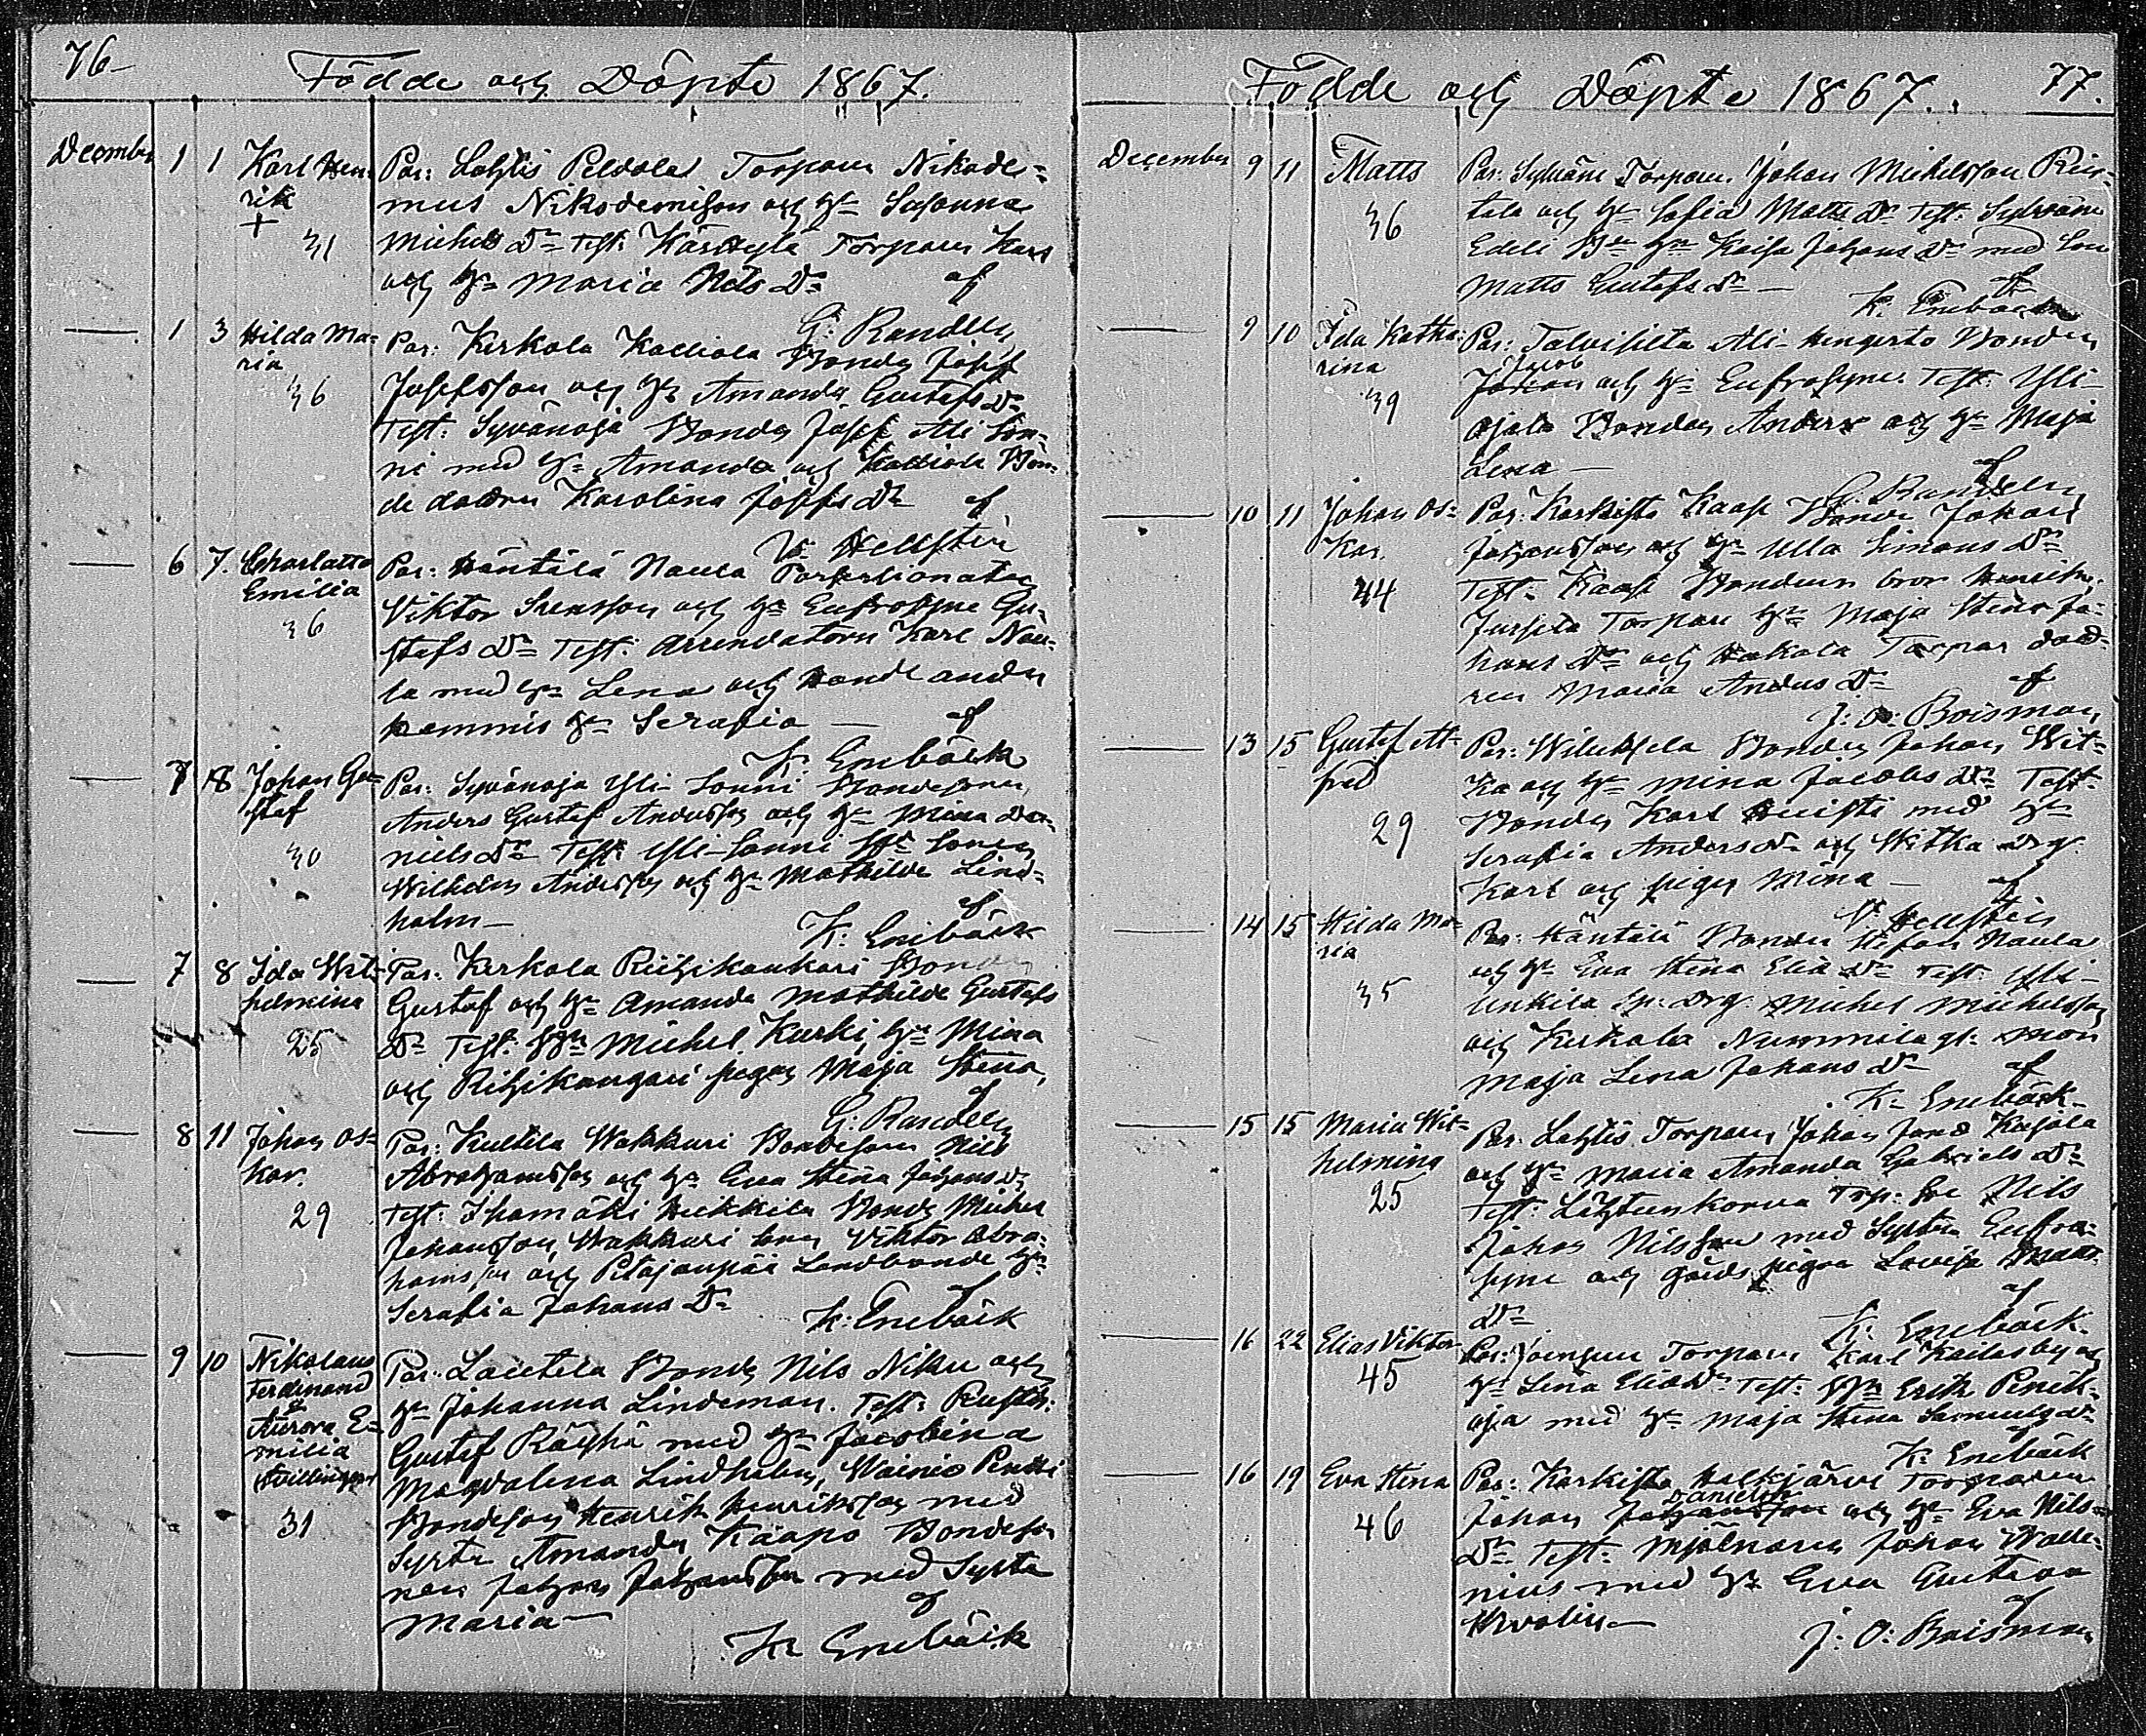 76
Födde och Döpte 1867.
December 1 1 Karl Hen-
rik
+
31
Par: Lahtis Peldola Torparen Nikode-
mus Nikodemisson och Hu Susanna
Michels Dr Test: Torparen Karl
och Hu Maria Nils Dr af
G: Randelin
1 3 Hilda Ma-
ria
36
Par: Kerkola Kalliola Bonden Josef
Josefsson och Hu Amanda Gustafs Dr
Test: Syvänoja Bonden Josef Ali Son-
ni med Hu Amanda och Kalliola Bon-
de dottren Karolina Josefs Dr af
Hellstén
6 7. Charlotta
Emilia
36
Par: Häntälä Naula
Viktor Svensson och Hu Eufrosyne Gu-
stafs Dr Test: Arrendatorn Karl Nau-
la med Hu Lena och
Hu Serafia — af
K: Enebäck
7 8 Johan Gu-
staf
30
Par: Syvänoja Yli Sonni Bondesonen
Anders Gustaf Andersson och Hu Mina Da-
niels Dr Test: Yli-Sonni Sonen
Wilhelm Andersson och Hu Mathilda Lind-
holm — af
K: Enebäck
7 8 Ida Wil-
helmina
25
Par: Kerkola Riihikankari Bonden
Gustaf och Hu Amanda Mathilda Gustafs
Dr Test: Bn Michel Kurki, Hu Mina
och Riihikangari pigan Maja Stina,
af
G: Randelin
8 11 Johan Os-
kar.
29
Par: Kultila Wakkuri Bondesonen Nils
Abrahamsson och Hu Eva Stina Johans Dr
Test: Ihamäki Heikkilä Bonden Michel
Johansson, Wakkuri Viktor Abra-
hamsson och Pitäjänpää Landbonde Hu
Serafia Johans Dr af
K: Enebäck
9 10 Nikolaus
Ferdinand
&
Aurora E-
milia
tvillingar
31
Par: Lautela Bonden Nils Niku och
Hu Johanna Lindeman. Test: Rusth:
Gustaf Räyhä med Hu Jacobina
Magdalena Lindholm, Wainio Pentti
Bondeson Henrik Henriksson med
Syster Amanda, Kaapo Bondeso-
nen Johan Johansson med Syster
Maria — af
K: Enebäck
Födde och Döpte 1867. 77.
December 9 11 Matts
36
Par: Sylväne Torparen Johan Michelsson Rin-
tala och Hu Sofia Matts Dr Test: Sylväne
Edeli Hu Kaisa Johans Dr med Son
Matts Gustafs — af
K. Enebäck
9 10 Ida Katha-
rina
39
Par: Talvisilta Ali-Hengisto Bonden
Jacob
Johan och Hu Eufrosyne. Test: Yli-
ojala Bonden Anders och Hu Maja
Lena — af
G: Randelin
10 11 Johan Os-
kar.
44
Par: Karkista Kaapo Bonde Johan
Johansson och Hu Ulla Simons Dr
Test: Kaapo Bondens bror Henrik,
Torpare Hu Maja Stina Jo-
hans Dr och Hakala Torpar dott-
ren Maria Anders Dr af
J: O: Boisman
13 15 Gustaf Al-
fred
29
Par: Wiluksela Bonden Johan Wit-
ka och Hu Mina Jacobs Dr Test:
Bonden Karl med Hu
Serafia Anders Dr och Witka drg.
Karl och pigan Mina — af
Hellstén
14 15 Hilda Ma-
ria
35
Par: Häntälä Bonden Stefan Naula
och Hu Eva Stina Elia Dr Test: Yli-
Unkila Sp. Drg. Michel Michelsson
och Kerkola Nummila gl: mor
Maja Lena Johans Dr af
K: Enebäck
15 15 Maria Wil-
helmina
25
Par: Lahtis Torparen Johan Kujala
och Hu Maria Amanda Gabriels Dr
Test: Lähteenkorva Trp: Son Nils
Johan Nilsson med Syster Eufro-
syne och gårds pigan Lovisa Matts
Dr af
K: Enebäck
16 22 Elias Viktor
45
Par: Torparen Karl och
Hu Lena Elias Dr Test: Bn Erik Penik-
oja med Hu Maja Stina Samuels Dr
af
K: Enebäck
16 19 Eva Stina
46
Par: Karkista Walkjärvi Torparen
Danielsson
Johan Johansson och Hu Eva Nils-
Dr Test: Mjölnaren Johan Walle-
nius med Hu Eva Gustava
— af
J: O: Boisman